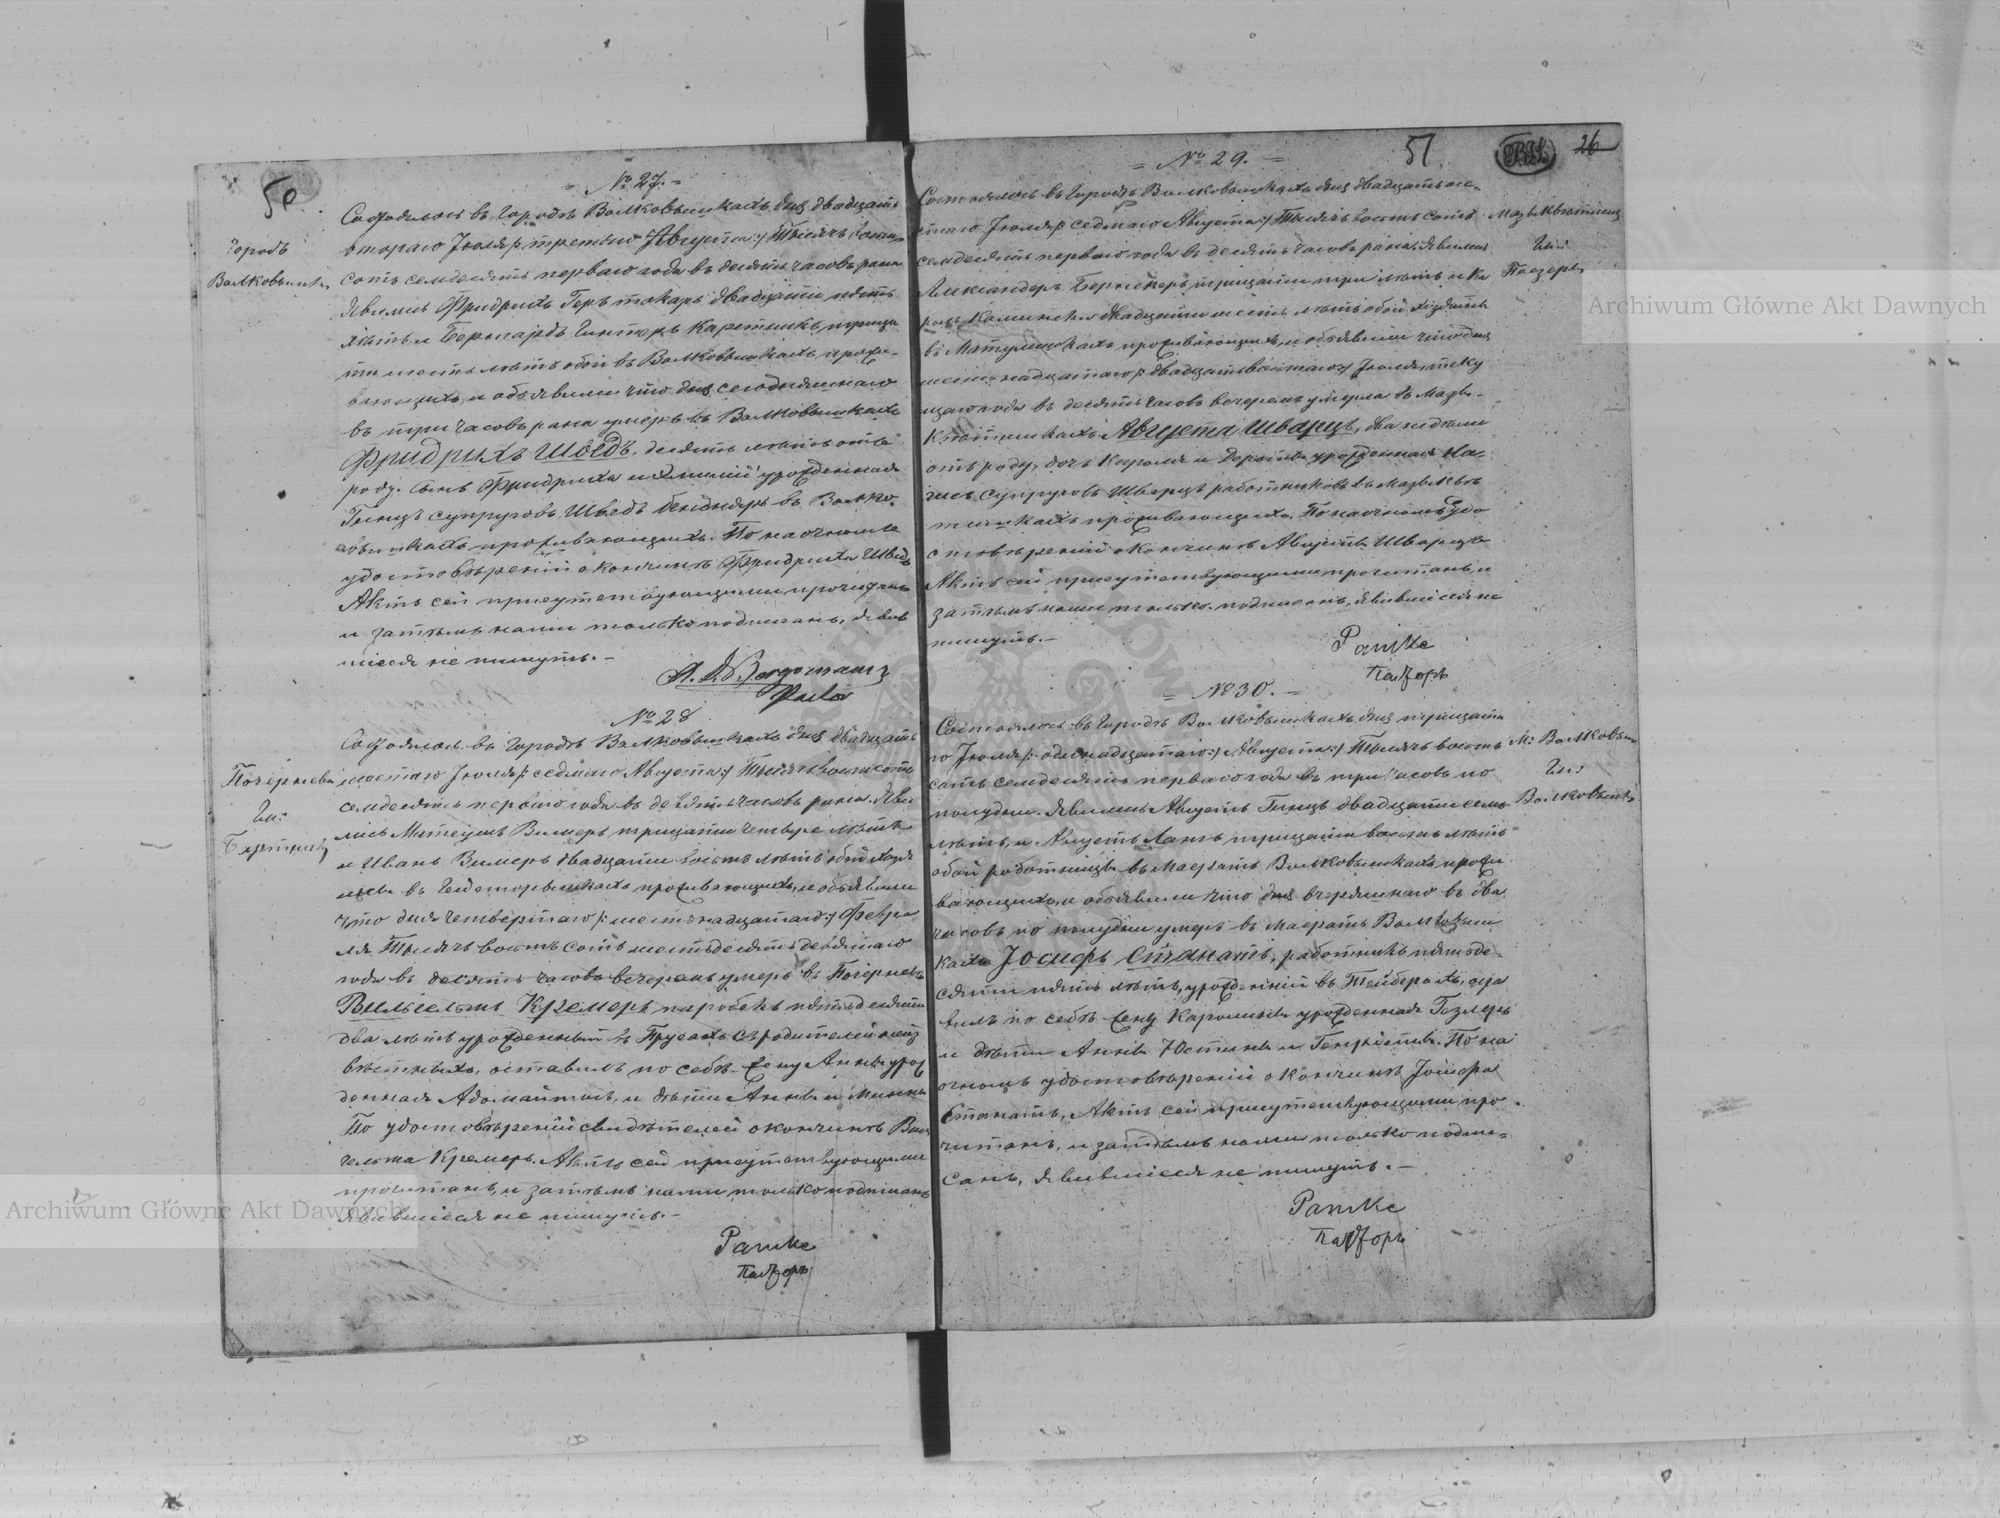 50
= № 27. =
Городъ
Волковышки
Состоялось въ городѣ Волковышкахъ дня двадцать
втораго Іюля /: третьяго Августа :/ Тысячь восем
сотъ семдесятъ перваго года въ десять часовъ рана
Явились Фридрихъ Геръ токарь двадцати пять
лѣтъ и Бернгардъ Гинтеръ Каретникъ, трица
ти шесть лѣтъ обой въ Волковышкахъ прожи-
вающихъ, и объявили что дня сегодняшнаго
въ три часовъ рана умеръ въ Волковышкахъ
Фридрихъ Шведъ, десять лѣтъ отъ
роду. Сынъ Фридриха и Эмилій урожденная
Гинцъ супруговъ Шведъ бенднеръ въ Волко-
вышкахъ проживающихъ. По наочномъ
удостовѣреній о кончинѣ Фридриха Шведъ
Актъ сей присутствующими прочитанъ
и затѣмъ нами только подписанъ, явив
шіеся не пишутъ.-
Bergmann
Pastor
№ 28
Почернева
Гм:
Состоялось въ городѣ Волковышкахъ дня двадцать
шестаго Іюля /: седмаго Августа :/ Тысячь восемсотъ
семдесятъ перваго года въ девять часовъ рана. Яви
лись Матеушъ Вимеръ трицати четыре лѣтъ
и Иванъ Вимеръ двадцати восемь лѣтъ обой
въ проживающихъ, и объявили
что дня четвертаго /: шестнадцатаго :/ Февра
ля Тысячь восемсотъ шестьдесятъ девятаго
года въ десять часовъ вечеромъ умеръ въ Почерневѣ
Вильгельмъ Кремеръ паробекъ пятьдесятъ
два лѣтъ урожденный въ Прусахъ съ родителей неиз
вѣстныхъ, оставилъ по себѣ жену Анну урож
денная Адомайтисъ, и дѣти Анна и Минна
По удостовѣреній свидѣтелей о кончинѣ Виль
гельма Кремеръ. Актъ сей присутствующими
прочитанъ, и затѣмъ нами только подписанъ
Явившіеся не пишутъ.-
Ранке
Пасторъ
51
26
= № 29. =
Состоялось въ городѣ Волковышкахъ дня двадцать ше-
стаго Іюля /: седмаго Августа :/ Тысячь восемь сотъ
семдесятъ перваго года въ десять часовъ рана. Явились
Александеръ трицати три лѣтъ и Ка
роль Каминскій двадцати шесть лѣтъ обой
въ проживающихъ, и объявили что дня
шестнадцатаго /: двадцать восмаго :/ Іюля теку
щаго года въ десять часовъ вечеромъ умерла въ Мазъ-
Августа Шварцъ, два недѣли
отъ роду, дочь Кароля и Доротеи урожденная
супруговъ Шварцъ работниковъ въ
проживающихъ. По наочномъ удо
стовѣреній о кончинѣ Августы Шварцъ
Актъ сей присутствующими прочитанъ, и
затѣмъ нами только подписанъ, явившіеся не
пишутъ.-
Ранке
Пасторъ
= № 30. =
М: Волковыш
Гм:
Волковышки
Состоялось въ городѣ Волковышкахъ дня трицата
го Іюля /: одиннадцатаго :/ Августа :/ Тысячь восемь
сотъ семдесятъ перваго года въ три часовъ по
полудни. Явились Августъ Гинцъ двадцати семь
лѣтъ, и Августъ Лангъ трицати восемь лѣтъ
обой работники въ маератѣ Волковышкахъ прожи
вающихъ, и объявили что дня вчерашнаго въ два
часовъ по полудни умеръ въ маератѣ Волковыш
кахъ Іосифъ Станатъ, работникъ пятьде-
сяти пять лѣтъ, урожденній въ Тейберахъ, оста
вилъ по себѣ жену Каролина урожденная Гезлеръ
и дѣти Анна Юстина и Генріета. По на
очномъ удостовѣреній о кончинѣ Іосифа
Станатъ, Актъ сей присутствующими про-
читанъ, и затѣмъ нами только подпи-
санъ, Явившіеся не пишутъ.-
Ранке
Пасторъ
Archiwum Główne Akt Dawnych
Archiwum Główne Akt Dawnych